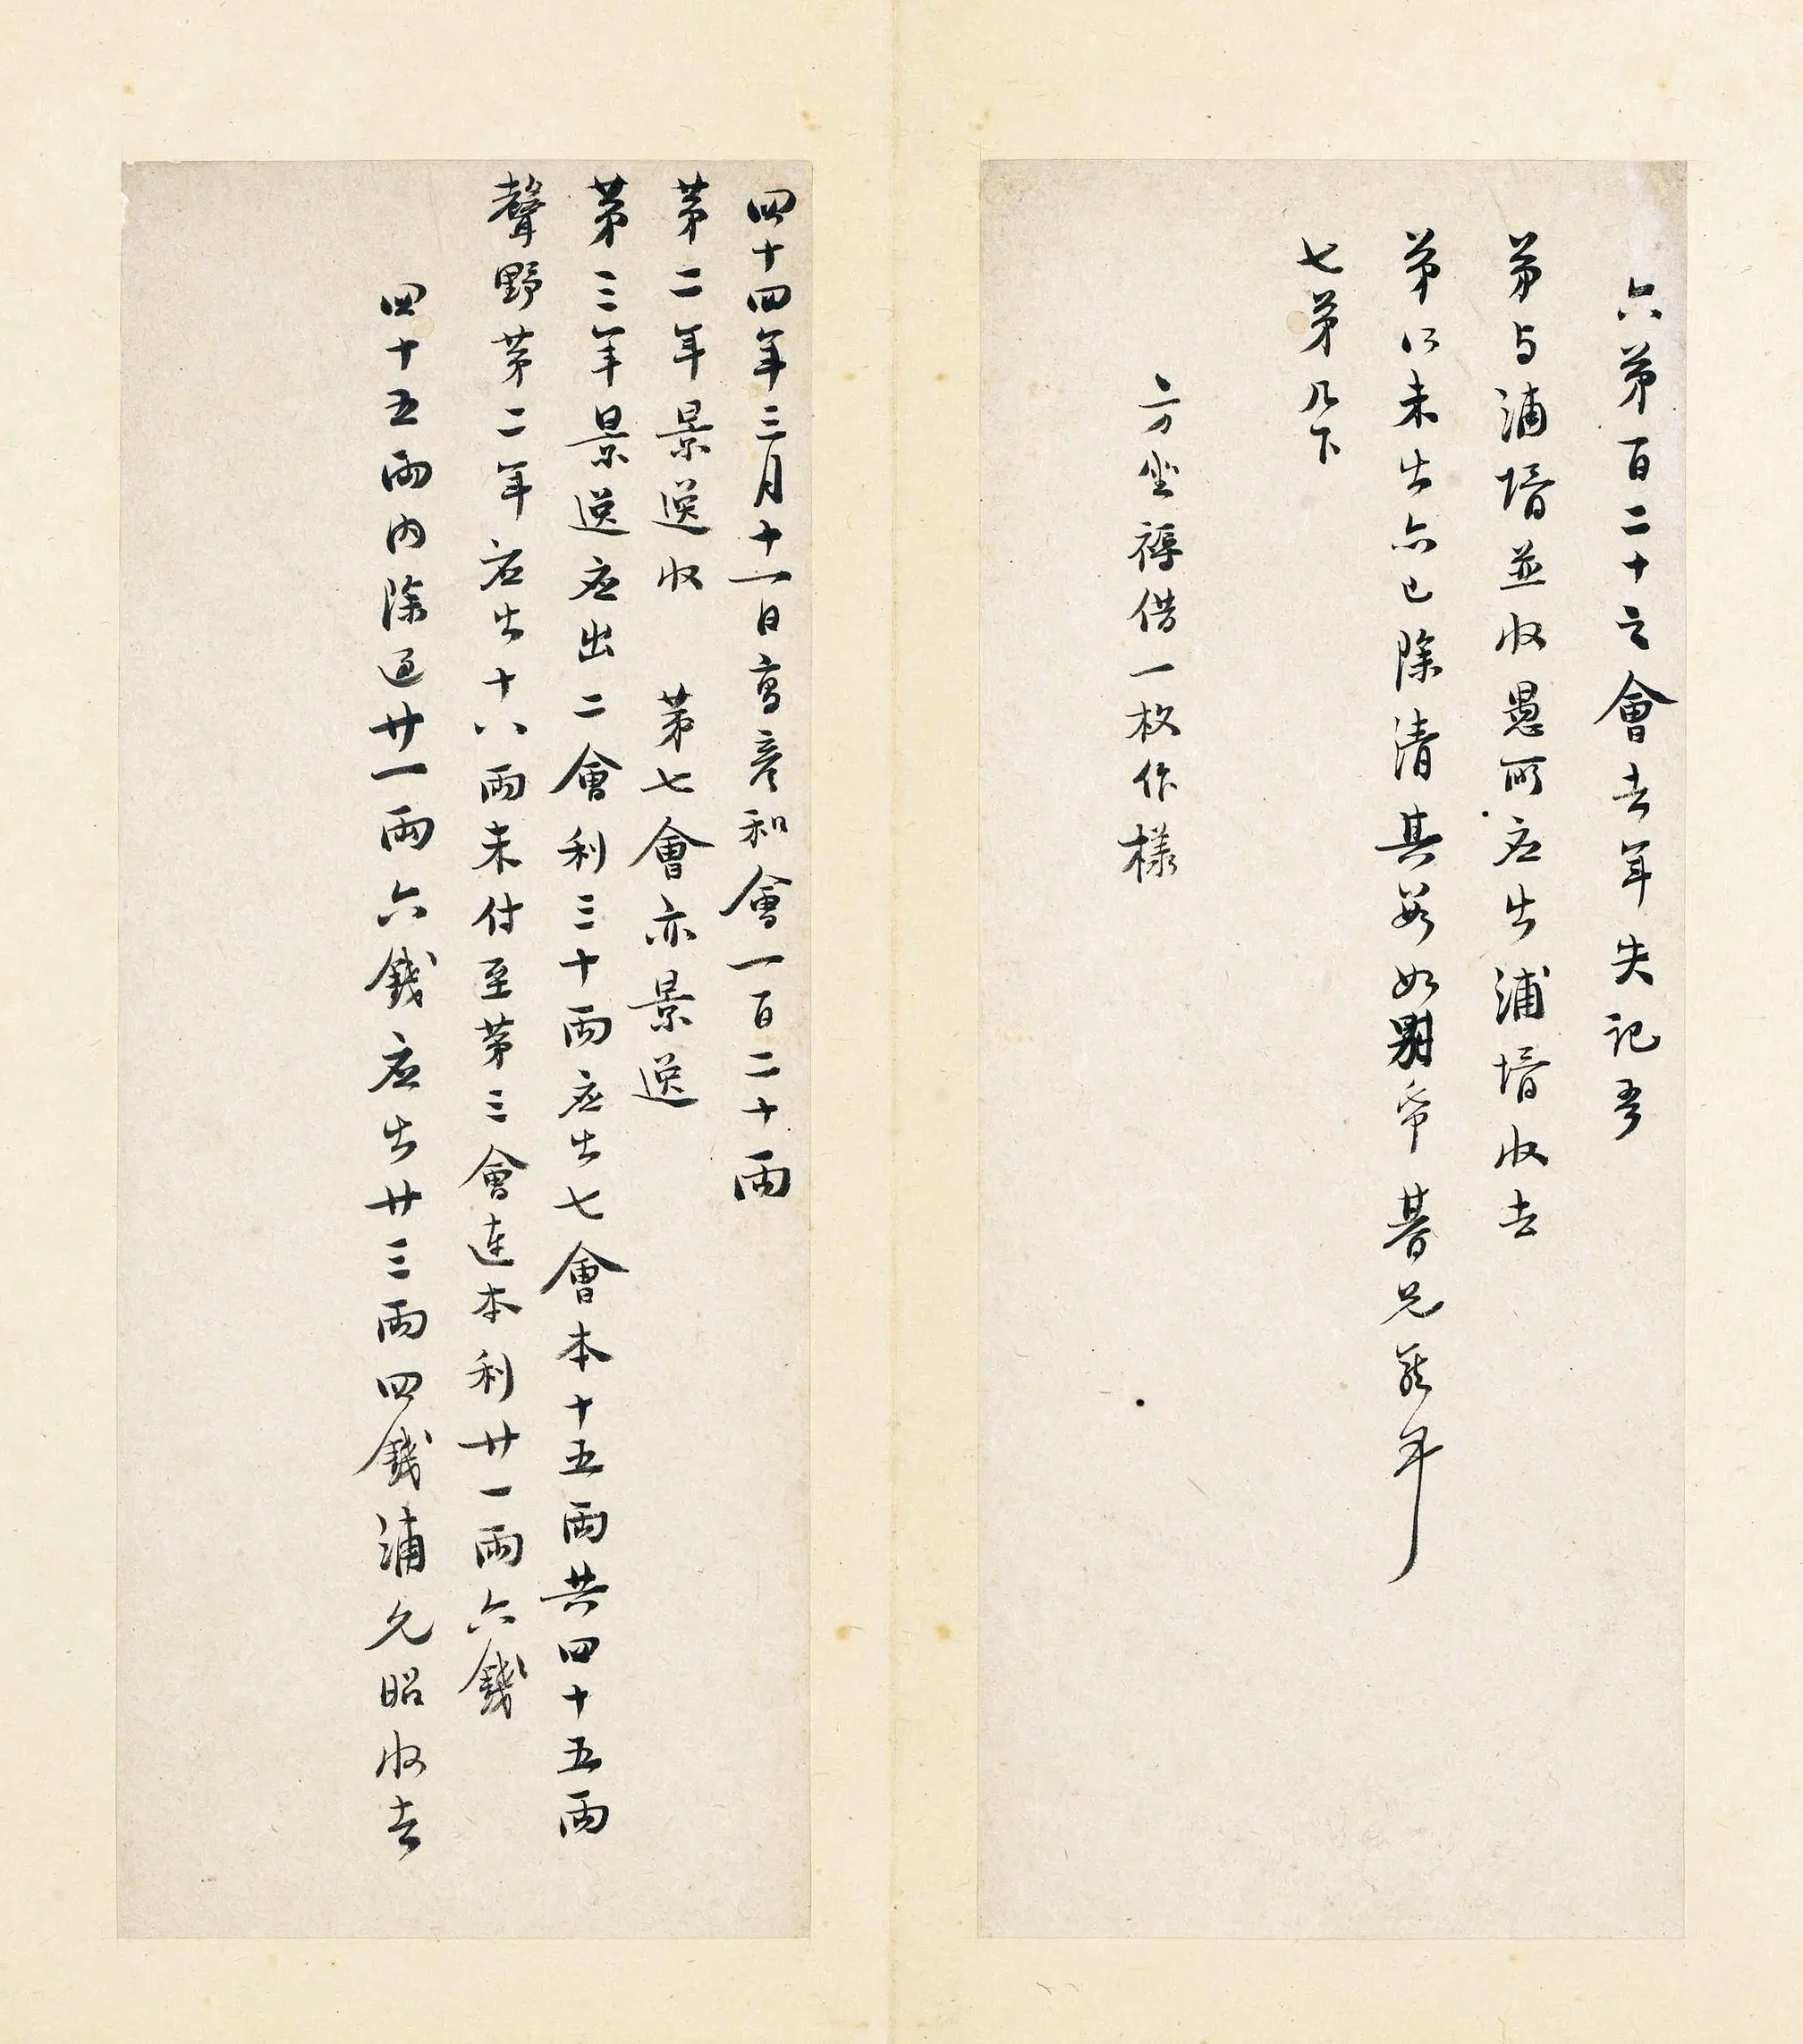 六弟百二十之會去年失記吾
弟与浦壻並收愚所应出浦壻收去
弟以未出亦已除清其數如別帋 期兄
七弟几下
方坐褥借一枚作樣
四十四年三月十一日高彦和會一百二十兩
第二年景遜收 第七會亦景送
第三年景送应出二會利三十兩应出七會本十五兩共四十五兩
聲野第二年应出十六兩未付至第三會連本利廿一兩六錢
四十五兩內除過廿一兩六錢应出廿三兩四錢浦允昭收去